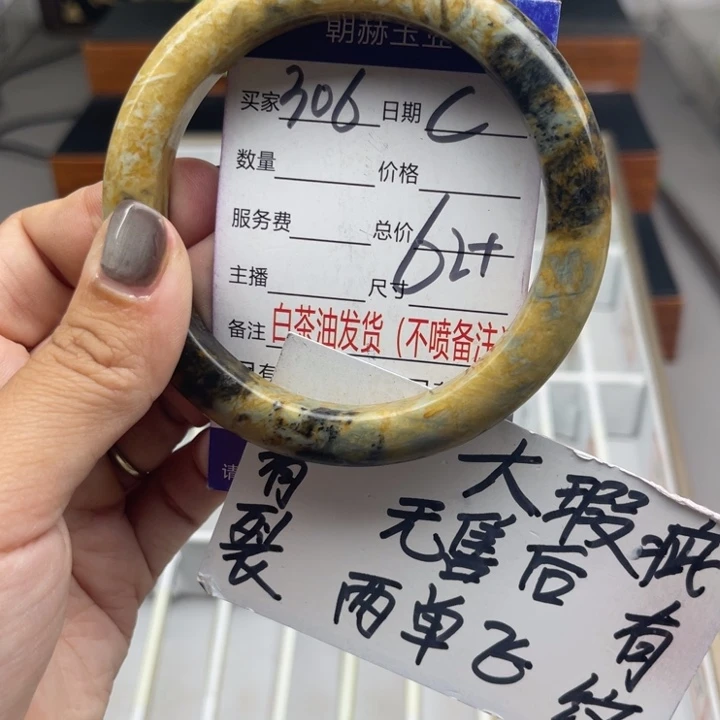 朝赫玉
买家 306 日期 C
数量 价格
服务费 总价
主播 尺寸 62+
备注 白茶油发货（不喷备注）
请
有裂
大瑕疵
无售后
两单飞
有纹